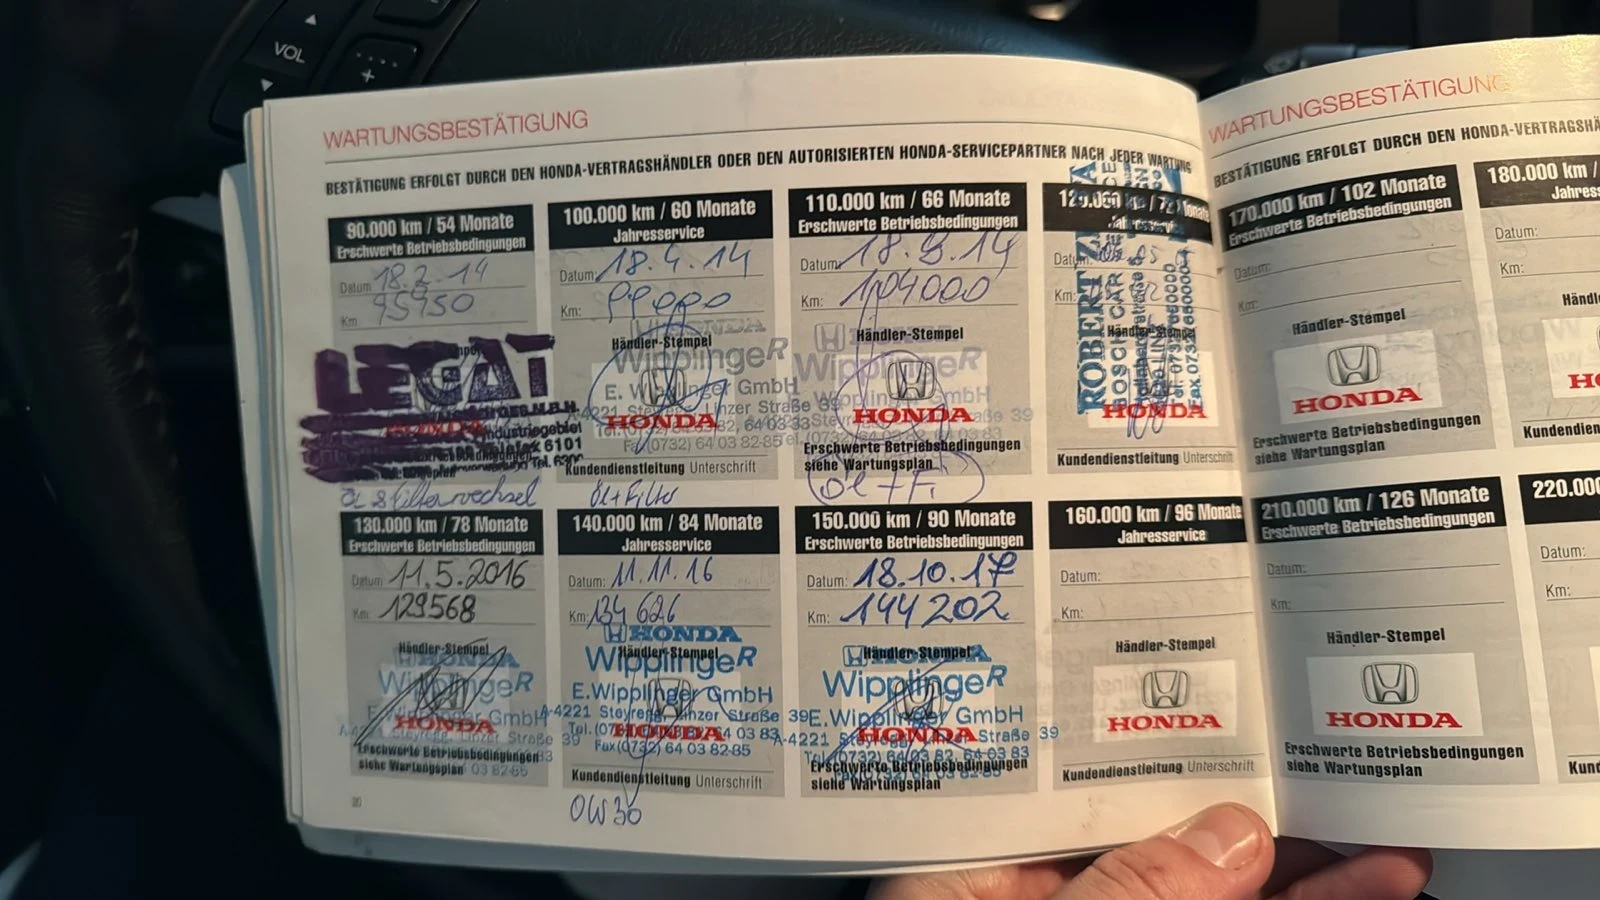 VOL
+
WARTUNGSBESTÄTIGUNG
BESTÄTIGUNG ERFOLGT DURCH DEN HONDA-VERTRAGSHÄNDLER ODER DEN AUTORISIERTEN HONDA-SERVICEPARTNER NACH JEDER WARTUNG
90.000 km / 54 Monate
Erschwerte Betriebsbedingungen
Datum 18.2.14
Km 95950
LEGAT
Industriegebiet
Öl & Filterwechsel
100.000 km / 60 Monate
Jahresservice
Datum: 18.4.14
Km:
Händler-Stempel
HONDA
WipplingeR
E. Wipplinger GmbH
A-4221 Steyregg, Linzer Straße 39
HONDA
Tel. (0732) 64 03 82, 64 03 83
Fax (0732) 64 03 82-85
Kundendienstleitung Unterschrift
Öl + Filter
110.000 km / 66 Monate
Erschwerte Betriebsbedingungen
Datum: 18.9.14
Km: 104000
Händler-Stempel
WipplingeR
HONDA
Erschwerte Betriebsbedingungen
siehe Wartungsplan
Öl + Fi
120.000 km / 72 Monate
Jahresservice
Datum:
Km:
ROBERT
BOSCH CAR SERVICE
Händler-Stempel
HONDA
Kundendienstleitung Unterschrift
130.000 km / 78 Monate
Erschwerte Betriebsbedingungen
Datum: 11.5.2016
Km: 129568
Händler-Stempel
HONDA
WipplingeR
E. Wipplinger GmbH
HONDA
A-4221 Steyregg, Linzer Straße 39
Erschwerte Betriebsbedingungen
siehe Wartungsplan
140.000 km / 84 Monate
Jahresservice
Datum: 11.11.16
Km: 134 626
HONDA
Händler-Stempel
WipplingeR
E.Wipplinger GmbH
A-4221 Steyregg, Linzer Straße 39
HONDA
Tel. (0732) 64 03 82, 64 03 83
Fax (0732) 64 03 82-85
Kundendienstleitung Unterschrift
OW30
150.000 km / 90 Monate
Erschwerte Betriebsbedingungen
Datum: 18.10.17
Km: 144 202
HONDA
Händler-Stempel
WipplingeR
E.Wipplinger GmbH
A-4221 Steyregg, Linzer Straße 39
HONDA
Tel. (0732) 64 03 82, 64 03 83
Erschwerte Betriebsbedingungen
siehe Wartungsplan
160.000 km / 96 Monate
Jahresservice
Datum:
Km:
Händler-Stempel
HONDA
Kundendienstleitung Unterschrift
WARTUNGSBESTÄTIGUNG
BESTÄTIGUNG ERFOLGT DURCH DEN HONDA-VERTRAGSHÄ
170.000 km / 102 Monate
Erschwerte Betriebsbedingungen
Datum:
Km:
Händler-Stempel
HONDA
Erschwerte Betriebsbedingungen
siehe Wartungsplan
180.000 km /
Jahress
Datum:
Km:
Händl
HO
Kundendien
210.000 km / 126 Monate
Erschwerte Betriebsbedingungen
Datum:
Km:
Händler-Stempel
HONDA
Erschwerte Betriebsbedingungen
siehe Wartungsplan
220.00
Datum:
Km:
Kund